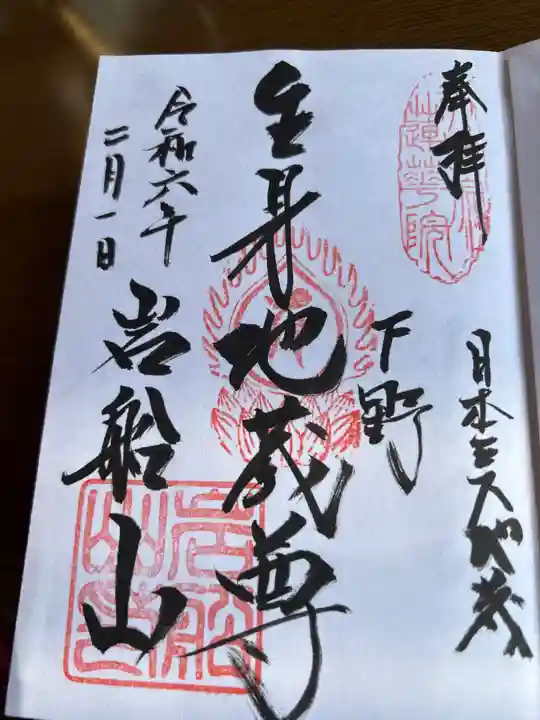 奉拝
蓮華院
日本三大地蔵
下野
生身地蔵尊
岩船山
令和六年
二月一日